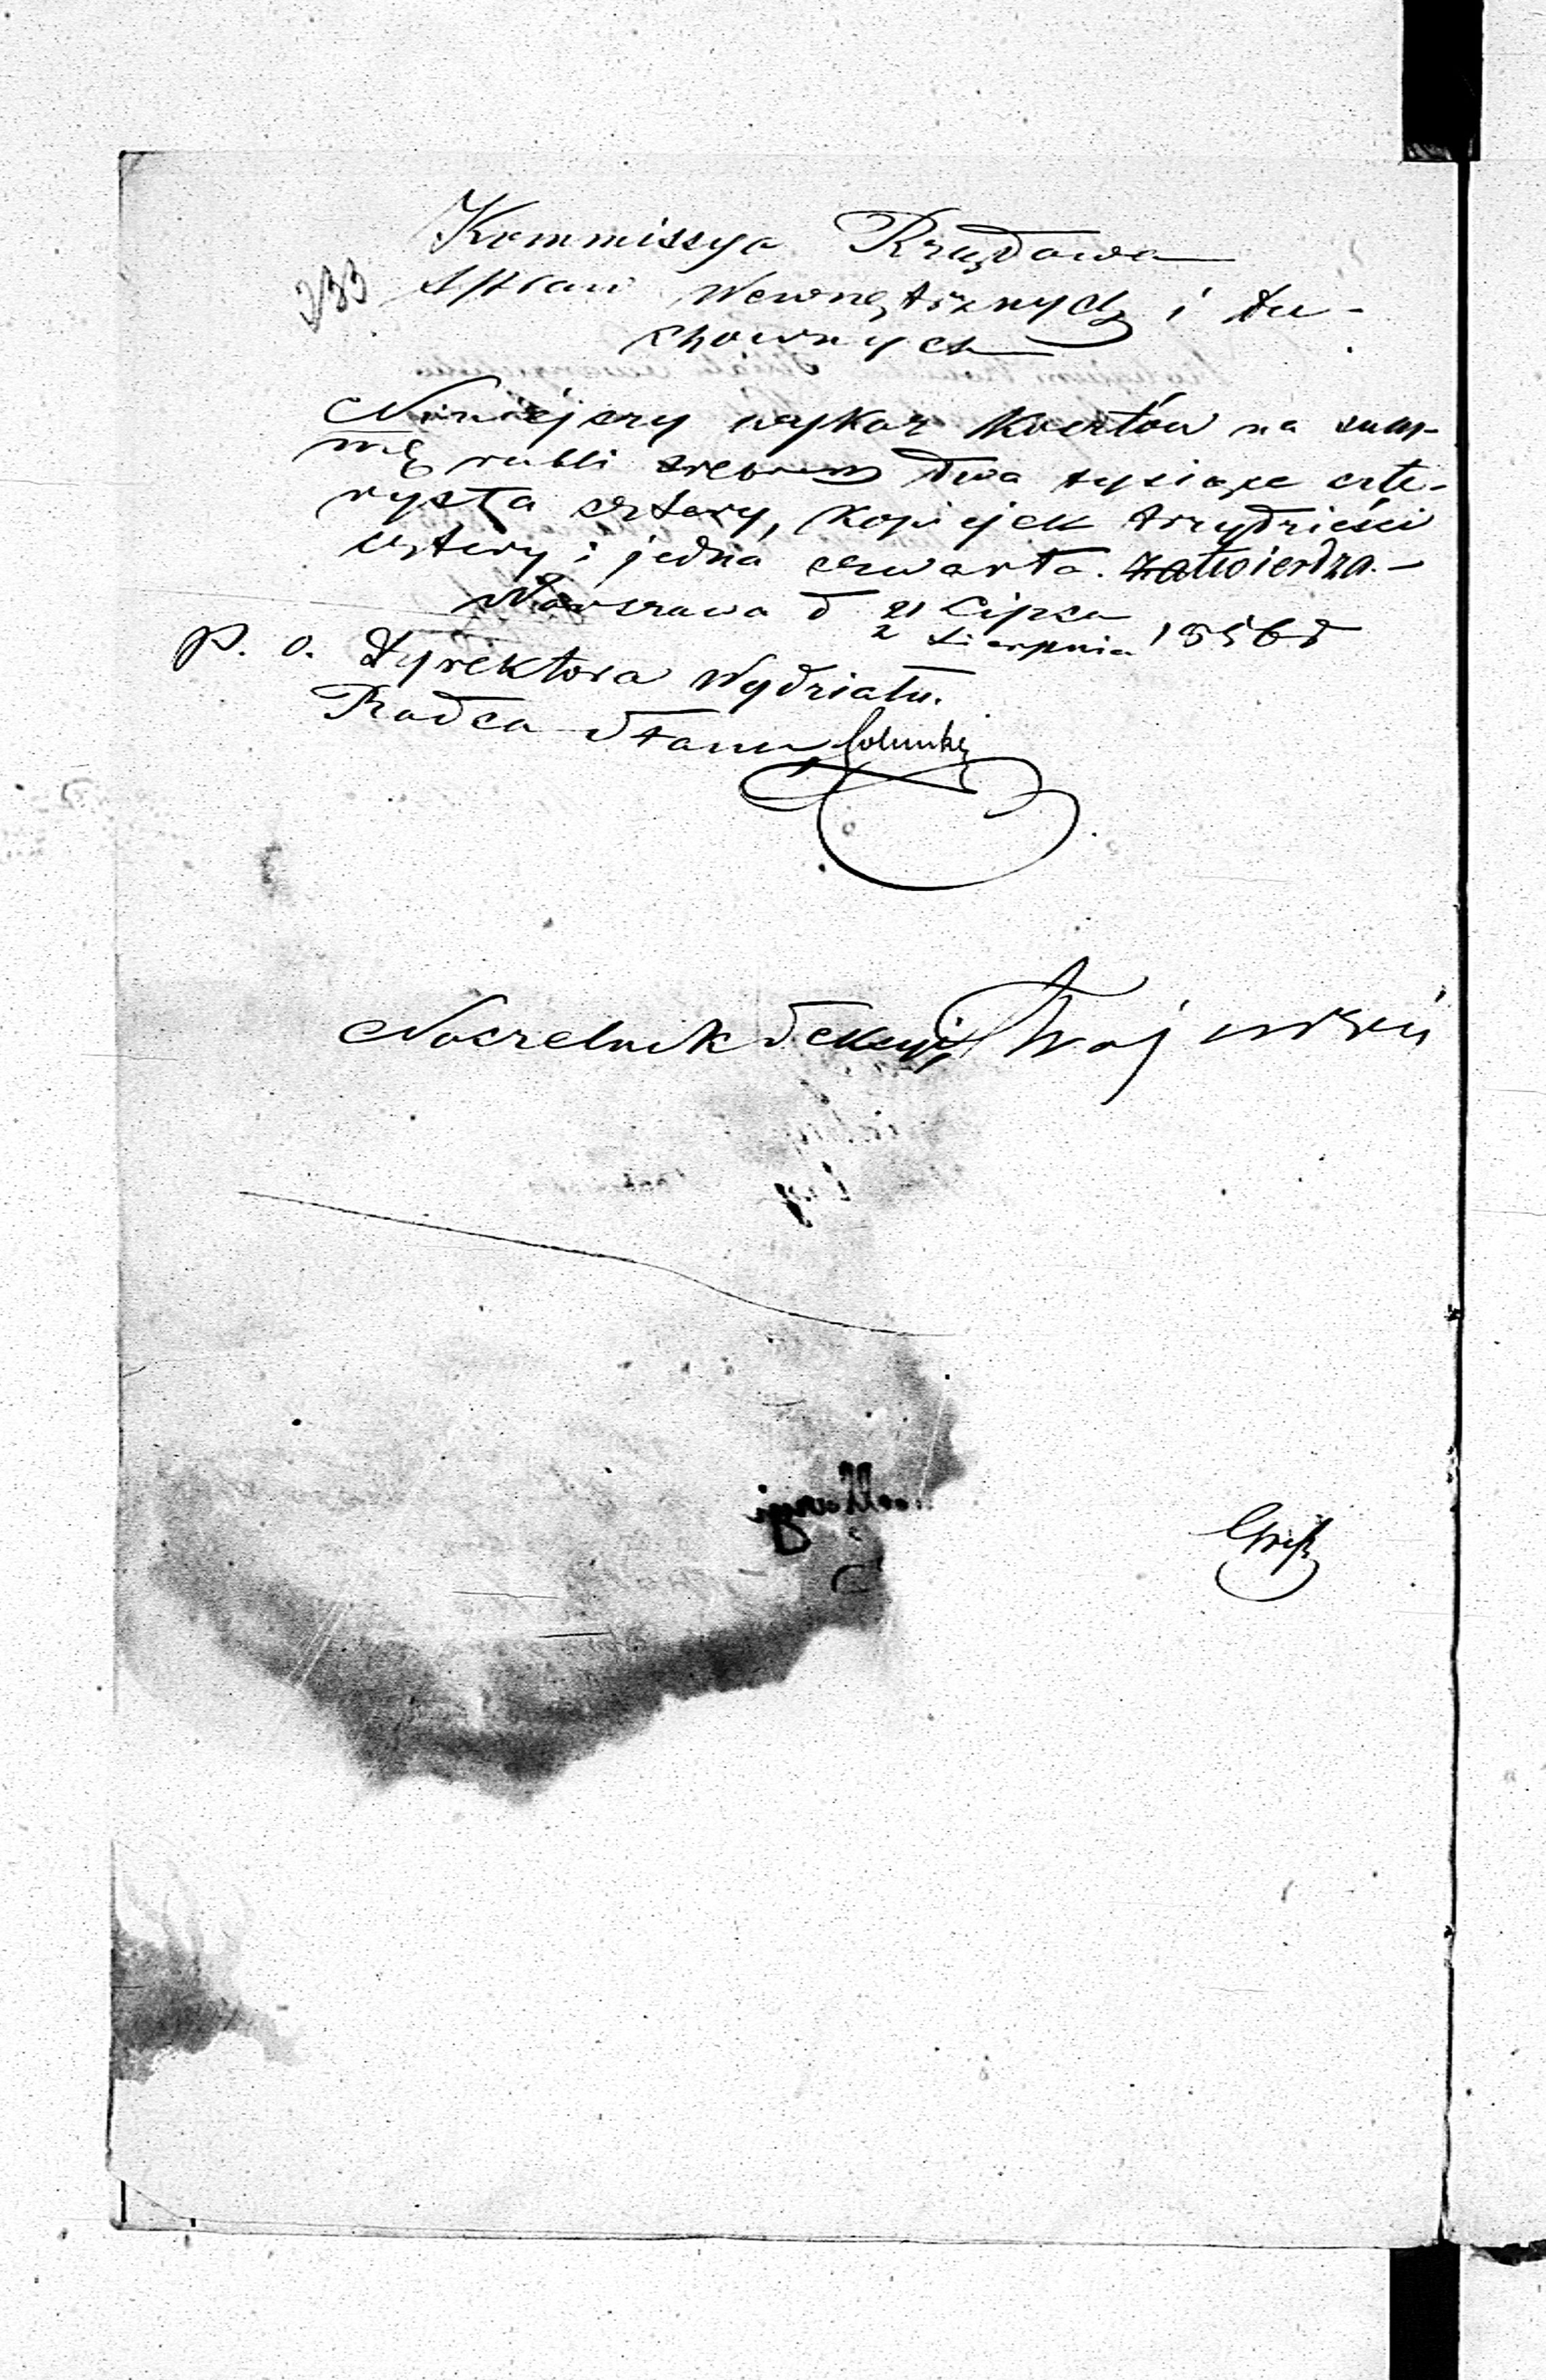 Kommissya Rządowa
233 Spraw Wewnętrznych i Du-
chownych
Niniejszy wykaz kosztów na sum-
mę rubli srebrem dwa tysiące czte-
rysta cztery, kopiejek trzydzieści
cztery i jedna czwarta. Zatwierdza.-
Warszawa d 21 Lipca
2 Sierpnia 1856 r
P. o. Dyrektora Wydziału.
Radca Stanu
Naczelnik Sekcyi